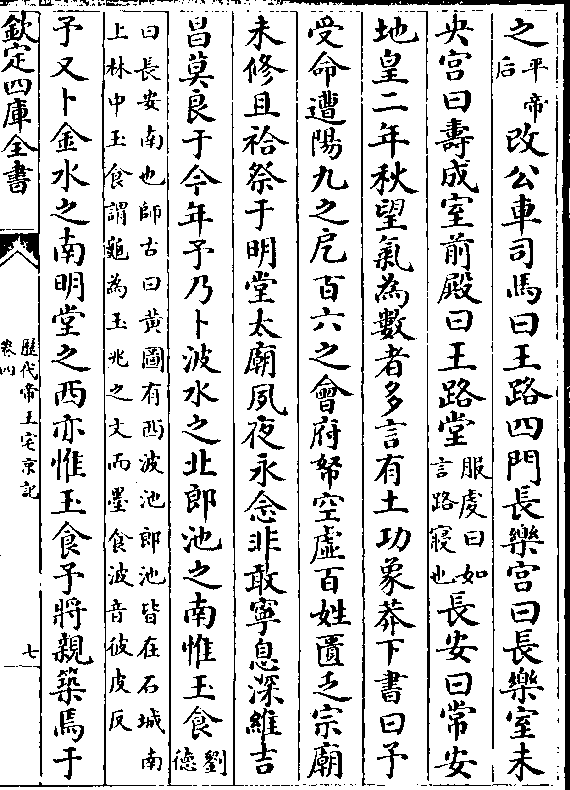 之平帝后改公車司馬曰王路四門長樂宮曰長樂室未
央宮曰壽成室前殿曰王路堂服虔曰如言路寢也長安曰常安
地皇二年秋望氣為數者多言有土功象莽下書曰予
受命遭陽九之戹百六之會府帑空虛百姓匱乏宗廟
未修且祫祭于明堂太廟夙夜永念非敢寧息深維吉
昌莫良于今年予乃卜波水之北郎池之南惟玉食劉德
曰長安南也師古曰黃圖有西波池郎池皆在石城南
上林中玉食謂龜為玉兆之文而墨食波音彼皮反
予又卜金水之南明堂之西亦惟玉食予將親築焉于
欽定四庫全書
歷代帝王宅京記
卷四
七